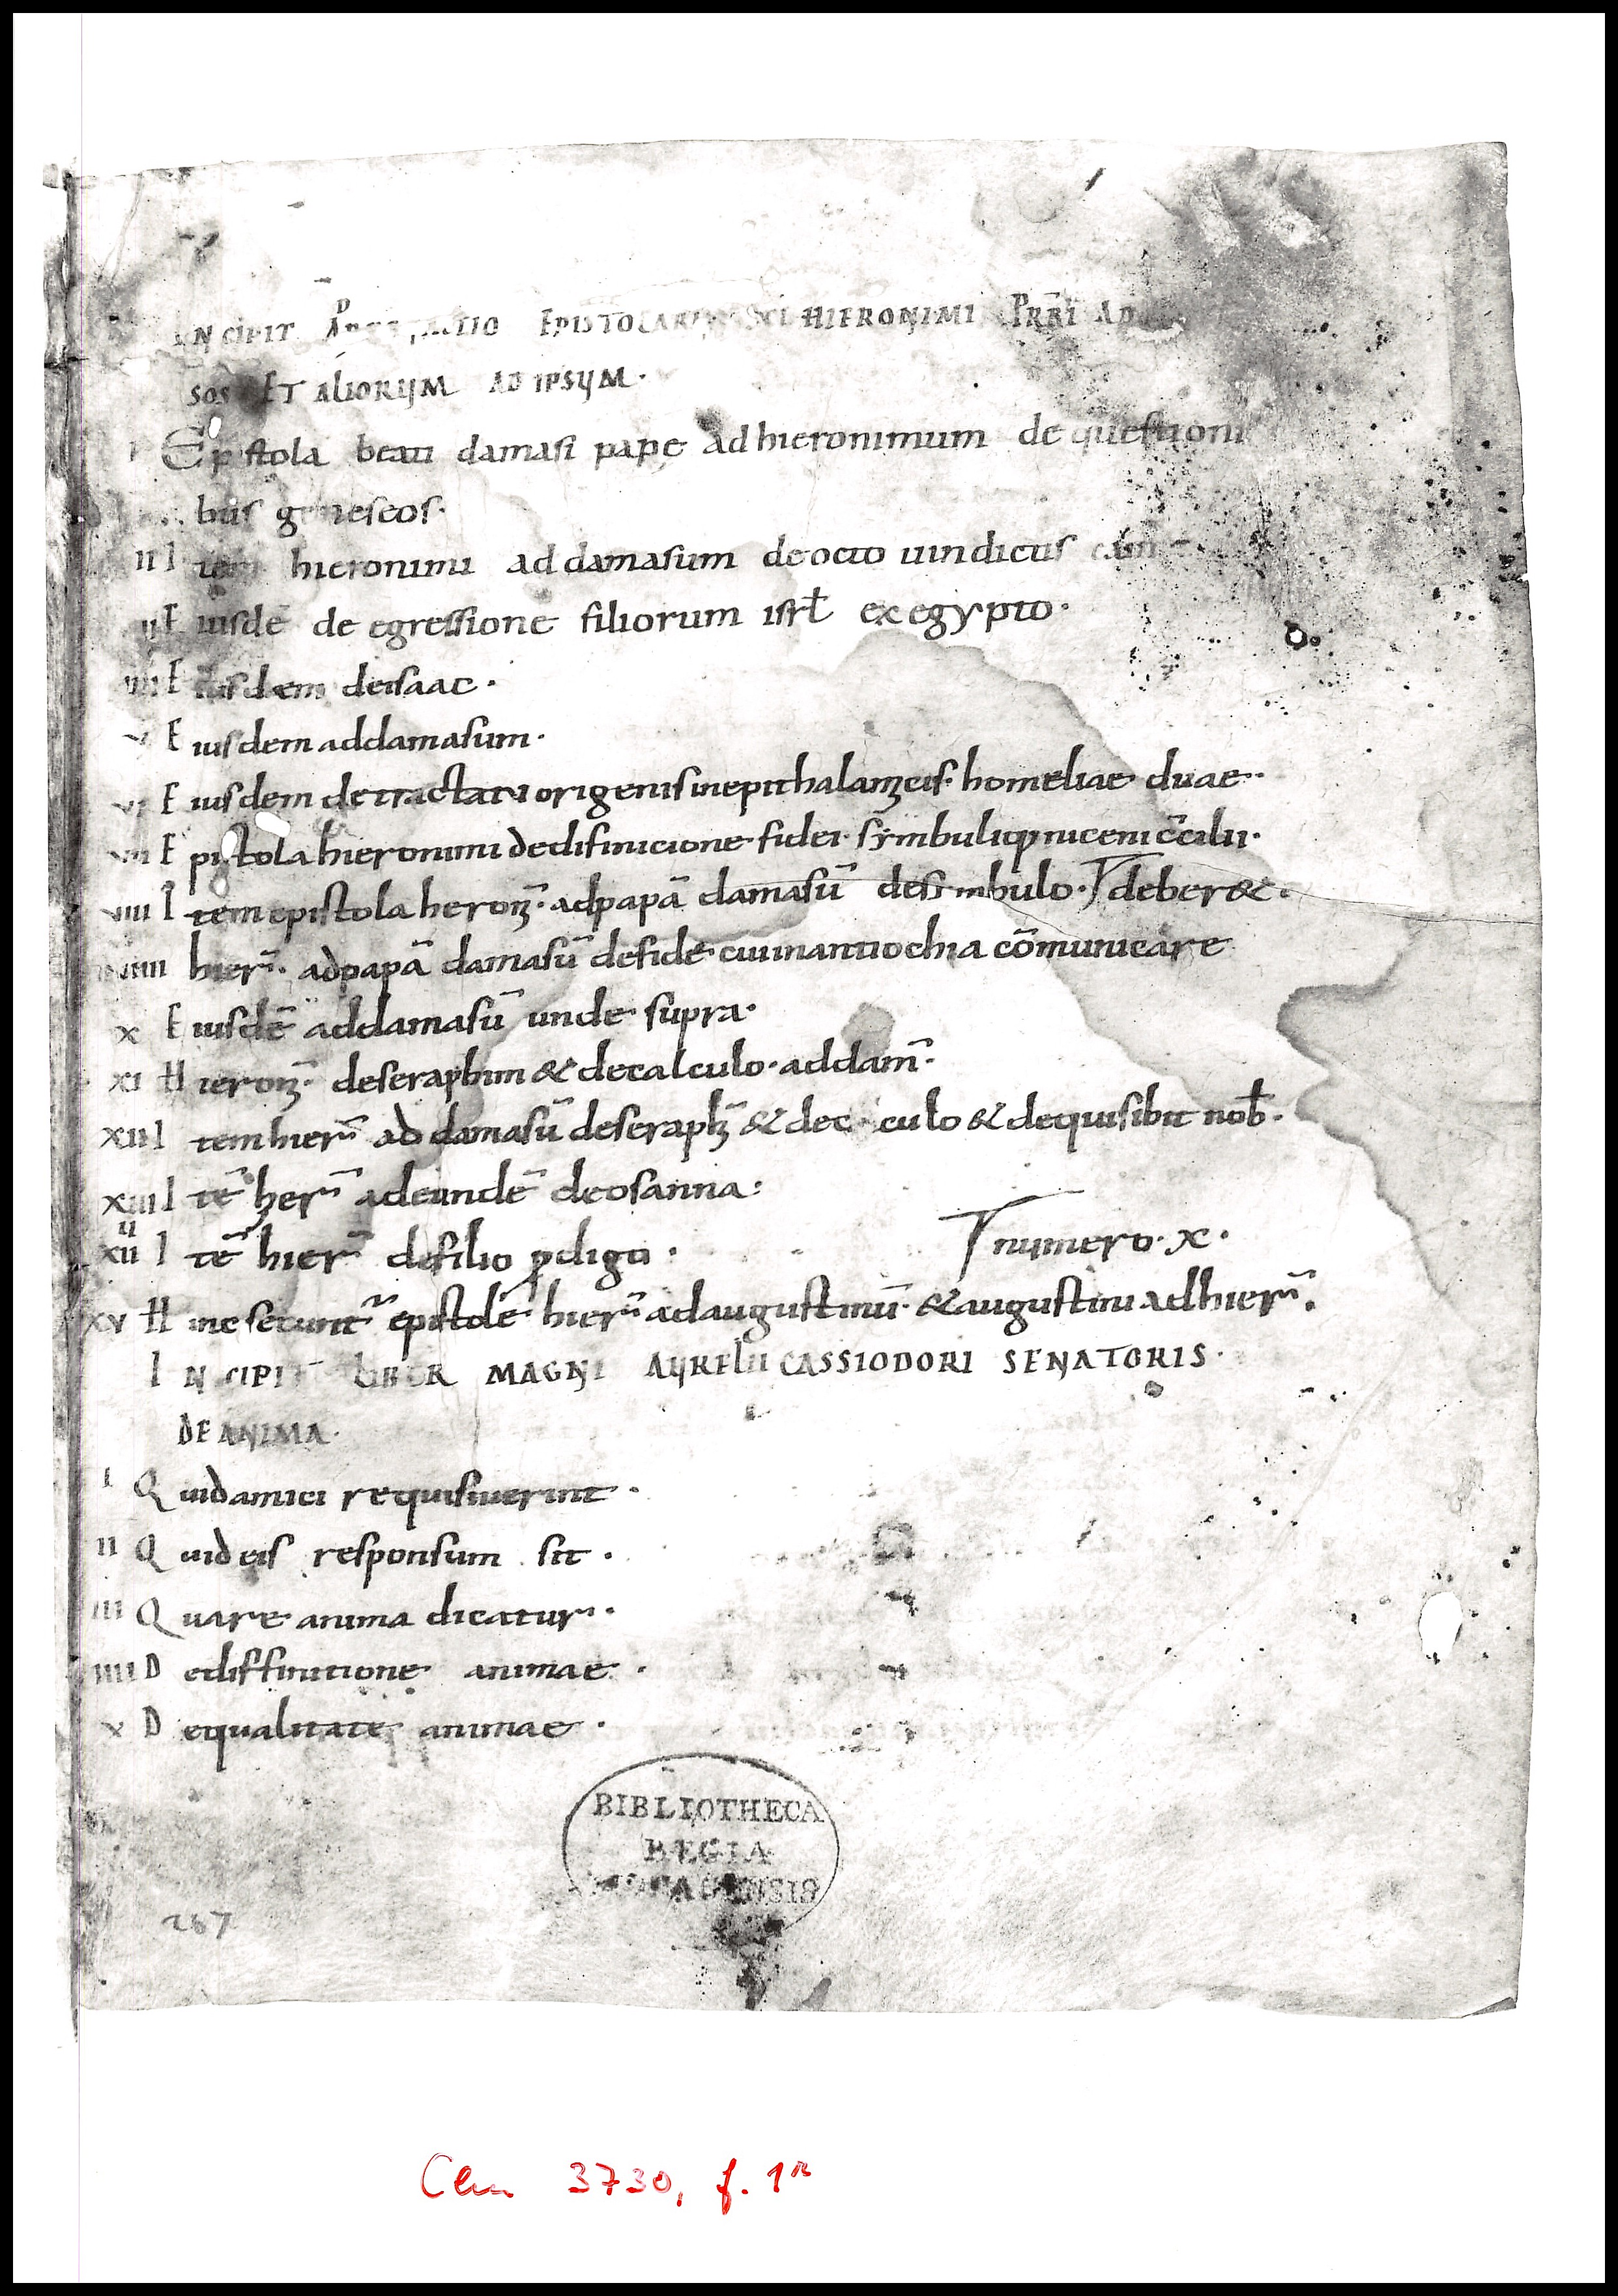 INCIPIT ADNOTATIO EPISTOLARUM SCI HIERONIMI PRBI AD
SOS ET ALIORUM AD IPSUM·
I Epistola beati damasi pape ad hieronimum de questioni
bus geneseos·
II Item hieronimi ad damasum de octo uindictis cain
III Eiusdē de egressione filiorum isrł ex egypto·
IIII Eiusdem deisaac·
V Eiusdem addamasum·
VI Eiusdem detractatu origenis inepithalamꝫ eis· homeliae duae·
VII Epistola hieronimi dedifinicione fidei· symbuliqꝫ niceni c̄cilii·
VIII Item epistola heronꝫ· adpapā damasū desimbulo· deber&·
VIIII hier̄· adpapā damasū defide cui inantiochia cōmunicare
X Eiusdē addamasū unde supra·
XI Hieronꝫ· deseraphim & decalculo· addam̄·
XII Item hier̄ ad damasū deseraphꝫ & decalculo & dequisibit nob̄·
XIII Itē her̄ adeundē deosanna:
XIIII Itē hier̄ defilio ꝓdigo·
numero· x·
XV Hinc secunt̄ epistolē hier̄ adaugustinū· &augustini adhier̄·
INCIPIT LIBER MAGNI AURELII CASSIODORI SENATORIS·
DE ANIMA·
I Quidamici requisiuerint·
II Quideis responsum sit·
III Quare anima dicatur·
IIII Dediffinitione animae·
X Dequalitate animae·
BIBLIOTHECA
REGIA
MONACENSIS
267
Clm 3730, f. 1r